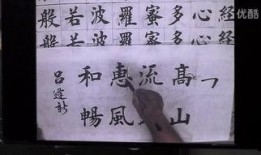 般若波羅蜜多心経
般若波羅蜜多心経
高山
流
惠風
和暢
呂
优酷